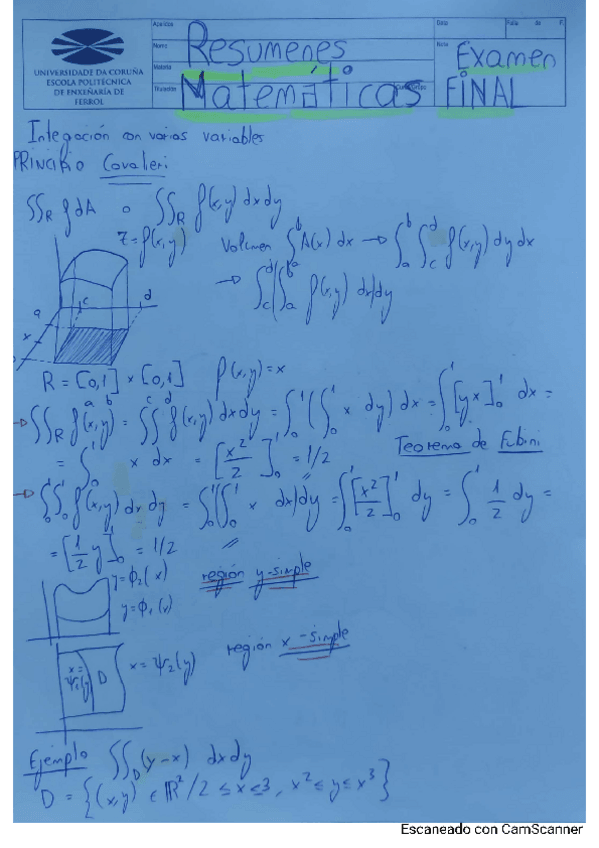 UNIVERSIDADE DA CORUÑA
ESCOLA POLITÉCNICA
DE ENXEÑARÍA DE
FERROL
Apelidos
Data
Folla de
Nome
Materia
Titulación
Nota
Resumenes
Matemáticas
Examen
FINAL
Integración con varias variables
PRINCIPIO Cavalieri
∬_R f dA o ∬_R f(x,y) dx dy
z = f(x,y)
Volumen ∫_a^b A(x) dx → ∫_a^b ∫_c^d f(x,y) dy dx
→ ∫_c^d (∫_a^b f(x,y) dx) dy
a x c d
R = [0,1] × [0,1] f(x,y) = x
a b c d
→ ∬_R f(x,y) = ∬ f(x,y) dx dy = ∫_0^1 (∫_0^1 x dy) dx = ∫_0^1 [yx]_0^1 dx =
= ∫_0^1 x dx = [x²/2]_0^1 = 1/2
Teorema de Fubini
→ ∫_0^1 ∫_0^1 f(x,y) dx dy = ∫_0^1 (∫_0^1 x dx) dy = ∫_0^1 [x²/2]_0^1 dy = ∫_0^1 1/2 dy =
= [1/2 y]_0^1 = 1/2
y = ϕ₂(x)
región y-simple
y = ϕ₁(x)
x = ψ₁(y) D x = ψ₂(y)
región x-simple
Ejemplo ∬_D (y-x) dx dy
D = {(x,y) ∈ ℝ² / 2 ≤ x ≤ 3, x² ≤ y ≤ x³}
Escaneado con CamScanner